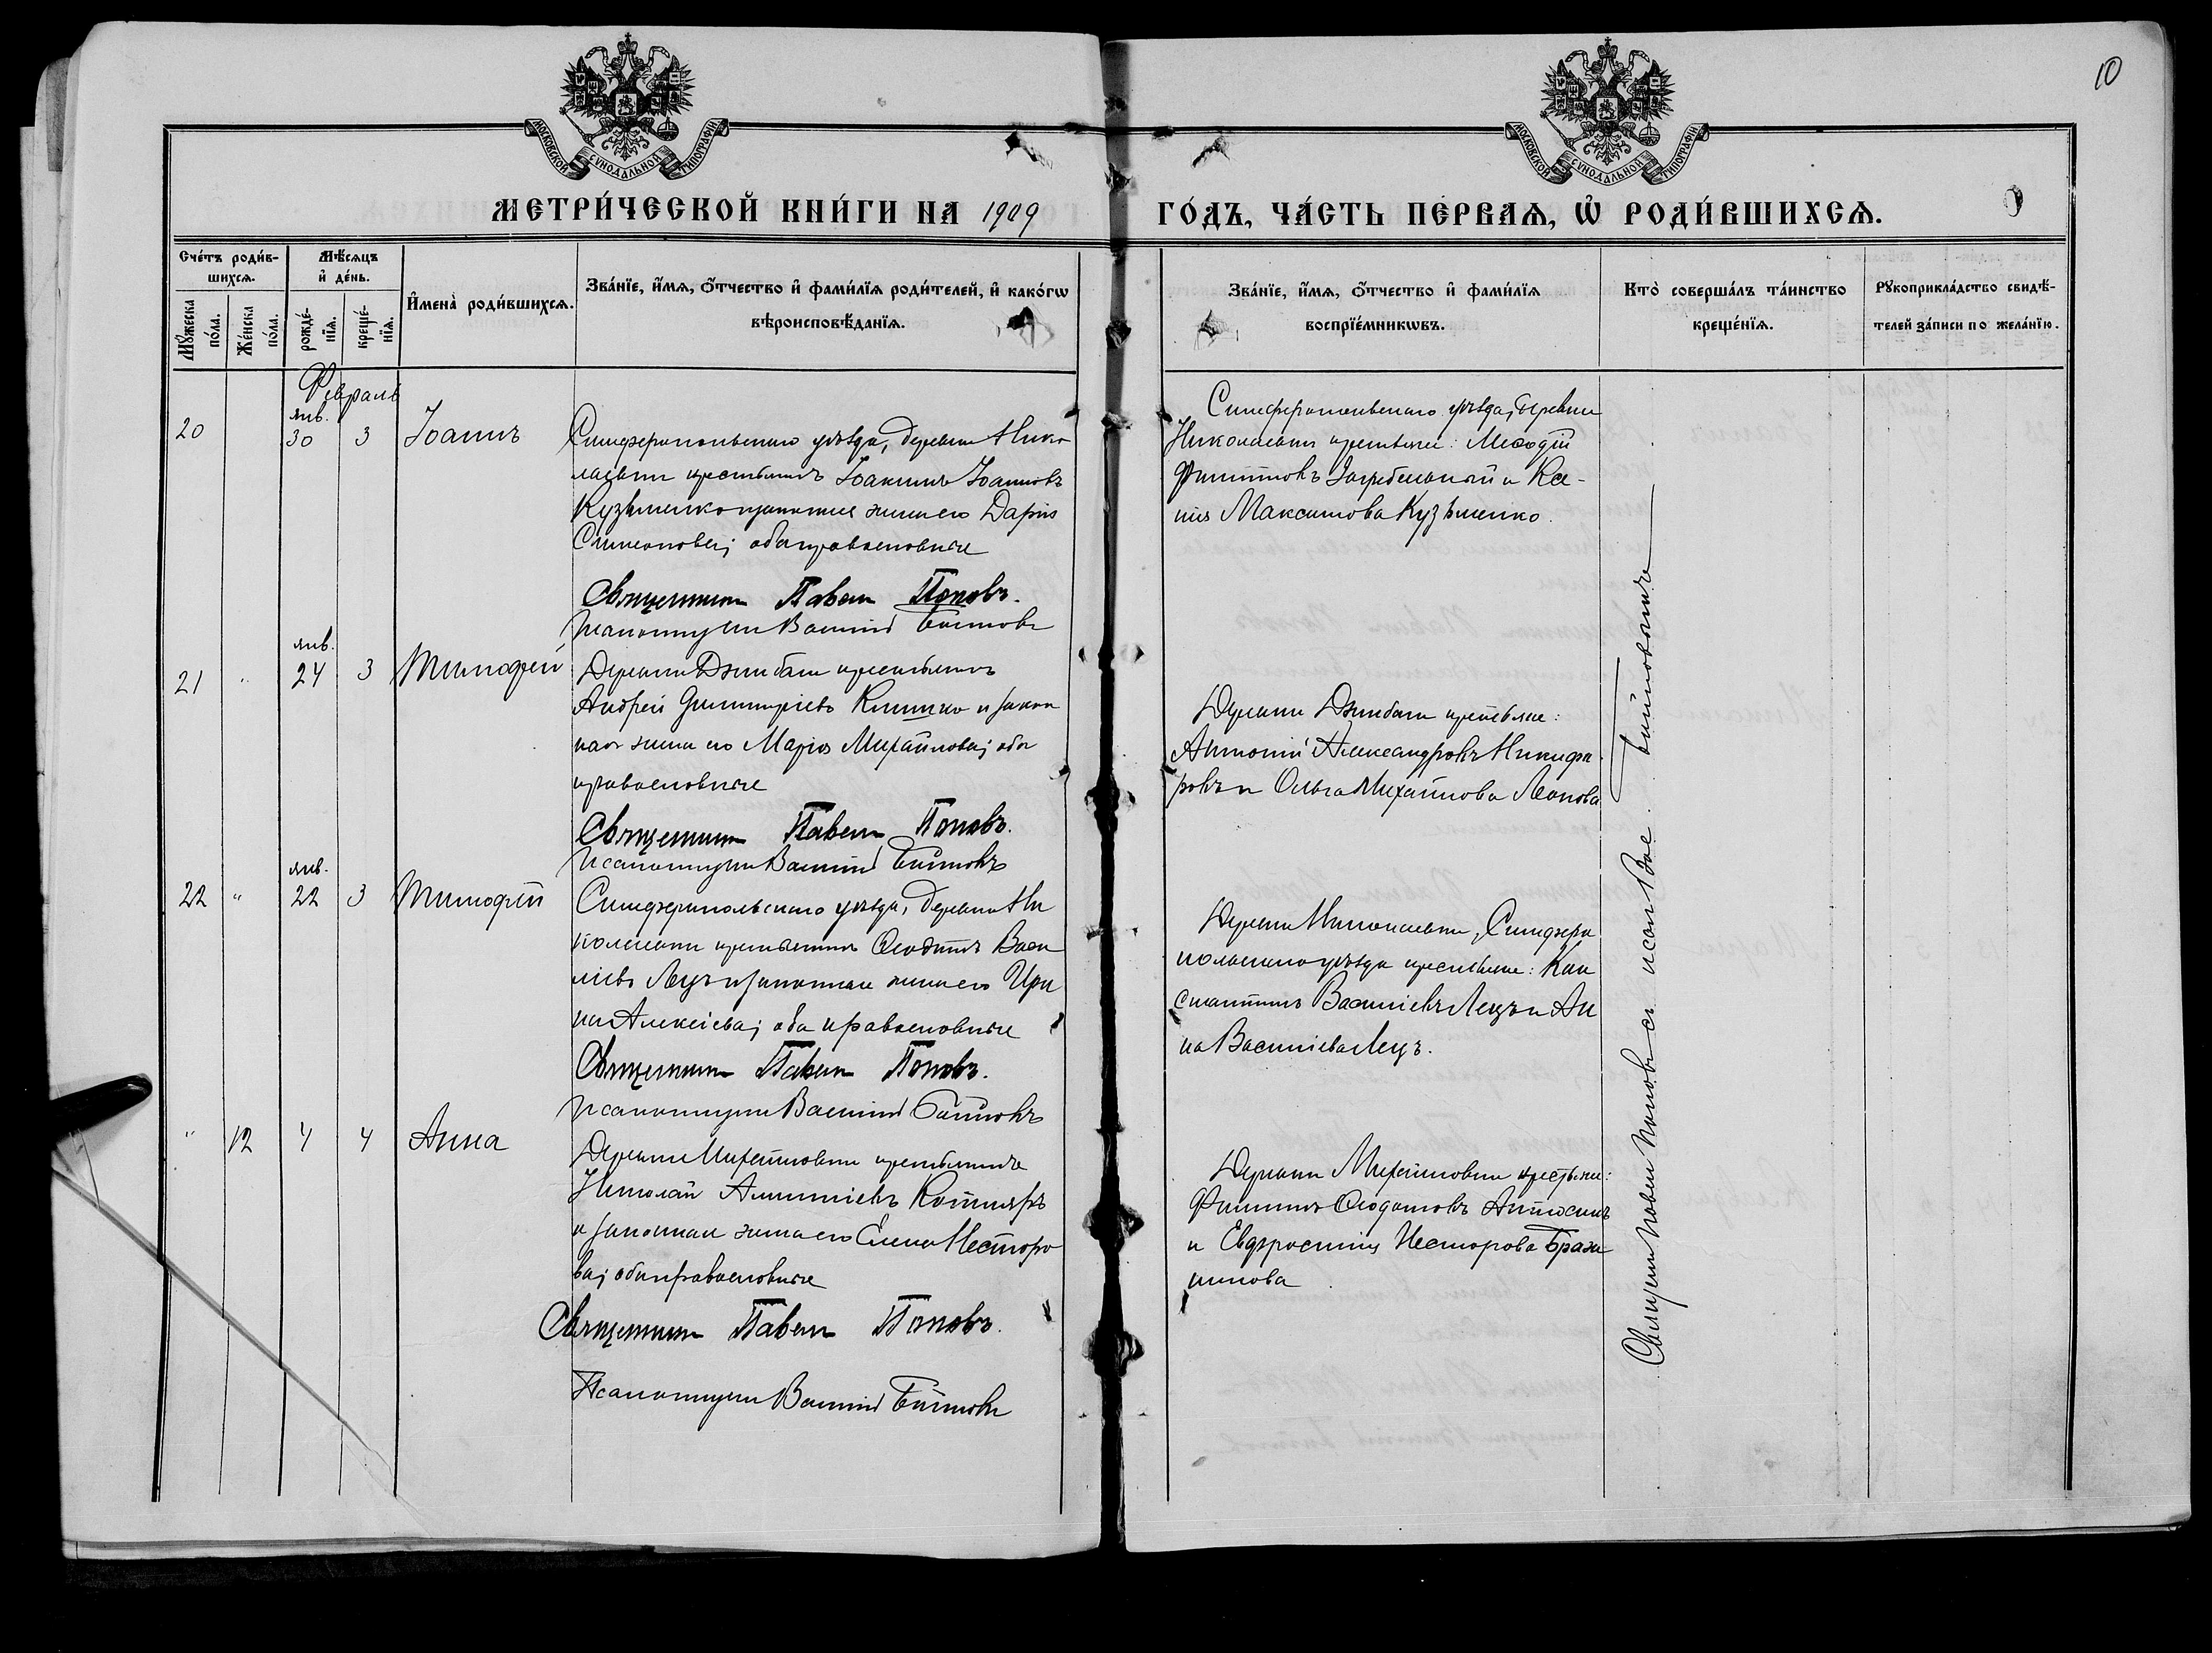 10
МОСКОВСКОЙ СѴНОДАЛЬНОЙ ТИПОГРАФІИ
МОСКОВСКОЙ СѴНОДАЛЬНОЙ ТИПОГРАФІИ
МЕТРИ́ЧЕСКОЙ КНИ́ГИ НА 1909 ГО́ДЪ, ЧА́СТЬ ПЕ́РВАѦ, Ѽ РОДИ́ВШИХСѦ.
Сче́тъ роди́в-
шихсѧ.
Мꙋ́жеска по́ла.
Же́нска по́ла.
Мѣ́сѧцъ
и҆ де́нь.
рожде́-
нїѧ.
креще́-
нїѧ.
И҆мена̀ роди́вшихсѧ.
Зва́нїе, и҆́мѧ, ѻ҆́тчество и҆ фами́лїѧ роди́телей, и҆ како́гѡ
вѣроисповѣ́данїѧ.
Зва́нїе, и҆́мѧ, ѻ҆́тчество и҆ фами́лїѧ
воспрїе́мникѡвъ.
Кто̀ соверша́лъ та́инство
креще́нїѧ.
Рꙋкоприкла́дство свидѣ́-
телей за́писи по жела́нїю.
Февраль
20 янв. 30 3 Іоаннъ
Симферопольскаго уѣзда, деревни Нико
лаевки крестьянинъ Іоакимъ Іоанновъ
Кузьменко и законная жена его Дарія
Симеонова; оба православные
Священникъ Павелъ Поповъ.
Псаломщикъ Василій
Симферопольскаго уѣзда, деревни
Николаевки крестьяне: Меѳодій
Филипповъ Загребельный и Ксе-
нія Максимова Кузьменко.
21 " янв. 24 3 Тимофей
Деревни крестьянинъ
Андрей Димитріевъ Климко и закон
ная жена его Марія Михайлова; оба
православные
Священникъ Павелъ Поповъ.
Псаломщикъ Василій
Деревни крестьяне:
Антоній Александровъ Никифо
ровъ и Ольга Михайлова Леонова
22 " янв. 22 3 Тимофей
Симферопольскаго уѣзда, деревни Ни
колаевки крестьянинъ Ѳеодотъ Васи
ліевъ Лецъ и законная жена его Ири
на Алексіева; оба православные
Священникъ Павелъ Поповъ.
Псаломщикъ Василій
Деревни Николаевки, Симферо
польскаго уѣзда крестьяне: Кон
стантинъ Василіевъ Лецъ и Ан
на Василіева Лецъ.
" 12 4 4 Анна
Деревни Михайловки крестьянинъ
Николай Котляръ
и законная жена его Елена Несторо
ва; оба православные
Священникъ Павелъ Поповъ.
Псаломщикъ Василій
Деревни Михайловки крестьяне:
Филиппъ Ѳеодотовъ
и Евфросинія Несторова
Священникъ Павелъ Поповъ съ псаломщ.